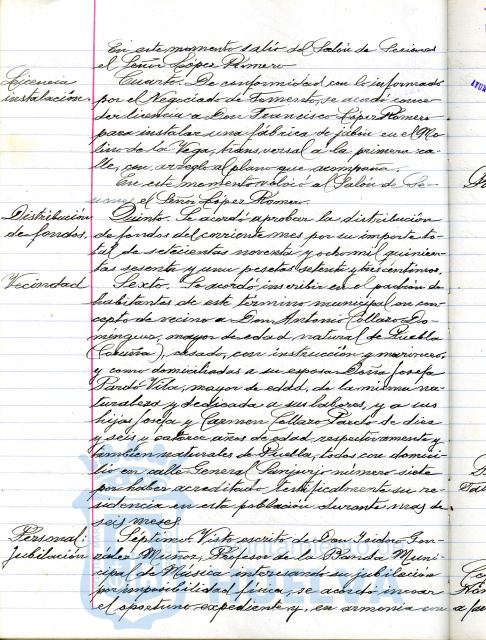 En este momento salió del Salón de Sesiones
el Señor López Romero
Licencia
instalación.
Cuarto. De conformidad con lo informado
por el Negociado de Fomento, se acordó conce-
der licencia a Don Francisco López Romero
para instalar una fábrica de jabón en el Mo-
lino de la Vega, transversal a la primera ca-
lle, con arreglo al plano que acompaña.
En este momento volvió al Salón de Se-
siones el Señor López Romero.
Distribución
de fondos.
Quinto. Se acordó aprobar la distribución
de fondos del corriente mes por su importe to-
tal de setecientas noventa y ocho mil quinien-
tas sesenta y una pesetas setenta y tres céntimos.
Vecindad
Sexto. Se acordó inscribir en el padrón de
habitantes de este término municipal en con-
cepto de vecino a Don Antonio Collazo Do-
mínguez, mayor de edad natural de Puebla
(Coruña), casado, con instrucción y marinero,
y como domiciliadas a su esposa Doña Josefa
Pardo Vila, mayor de edad, de la misma na-
turaleza y dedicada a sus labores, y a sus
hijas Josefa y Carmen Collazo Pardo de diez
y seis y catorce años de edad, respectivamente y
también naturales de Puebla, todos con domici-
lio en calle General Sanjurjo número siete
por haber acreditado testificalmente su re-
sidencia en esta población durante más de
seis meses.
Personal:
Jubilación
Septimo. Visto escrito de Don Isidoro Gon-
zález Muñoz, Profesor de la Banda Muni-
cipal de Música interesando su jubilación
por imposibilidad física, se acordó incoar
el oportuno expediente y, en armonía con